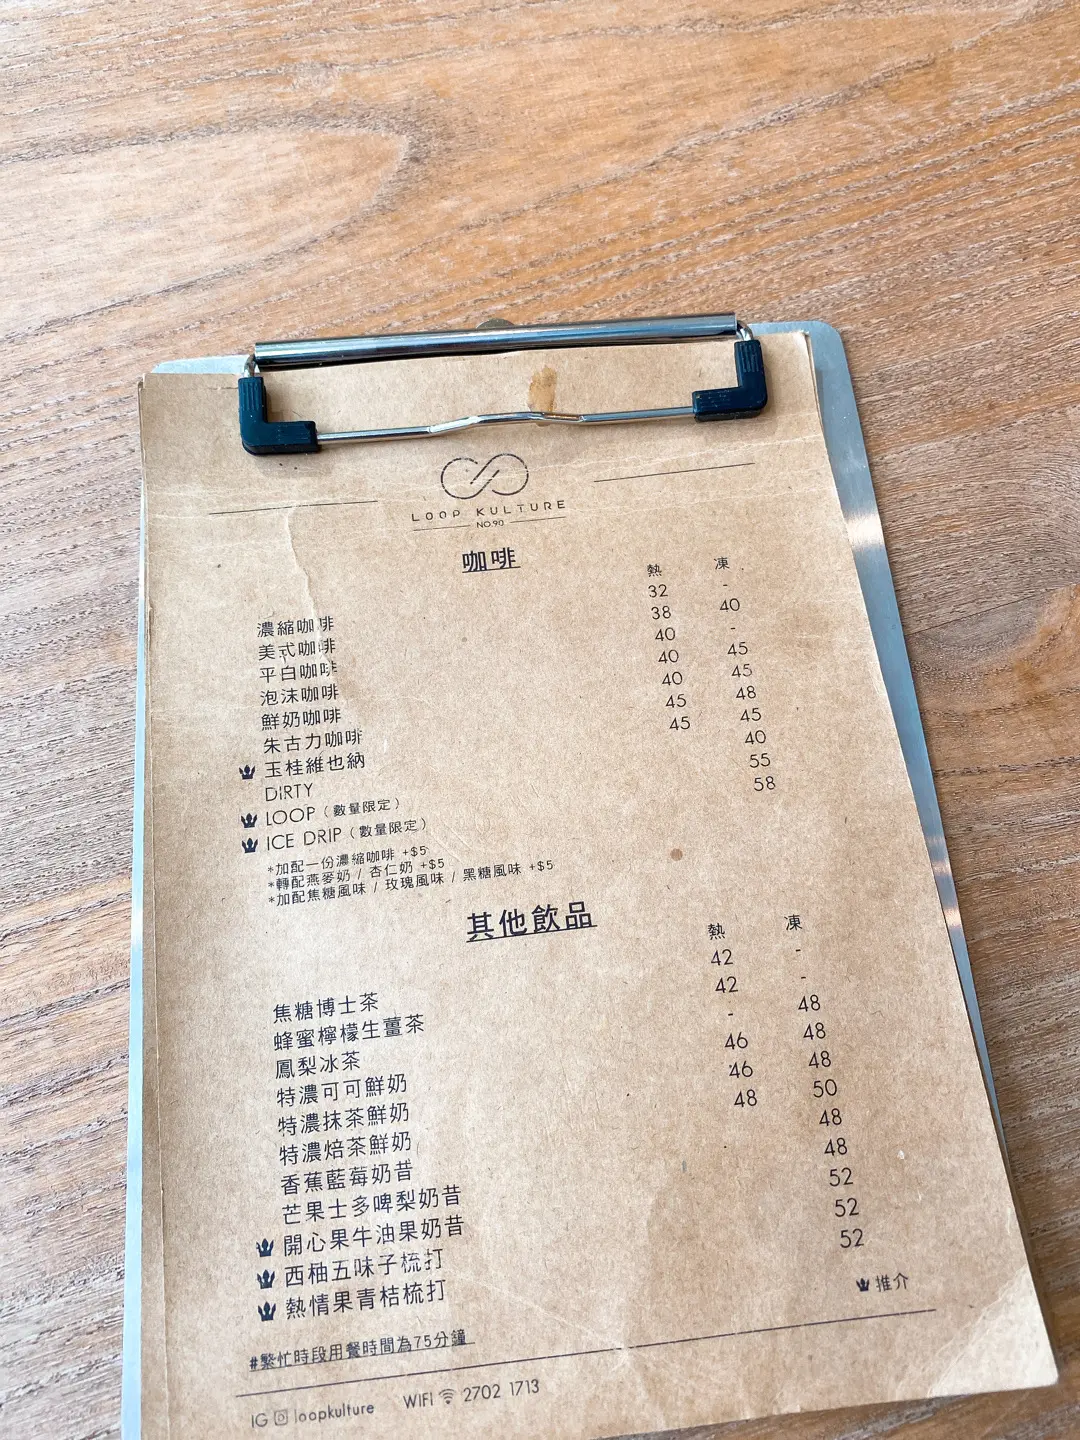 LOOP KULTURE
NO.90
咖啡
熱 凍
濃縮咖啡 32 -
美式咖啡 38 40
平白咖啡 40 -
泡沫咖啡 40 45
鮮奶咖啡 40 45
朱古力咖啡 45 48
玉桂維也納 45 45
DIRTY 40
LOOP（數量限定） 55
ICE DRIP（數量限定） 58
*加配一份濃縮咖啡 +$5
*轉配燕麥奶 / 杏仁奶 +$5
*加配焦糖風味 / 玫瑰風味 / 黑糖風味 +$5
其他飲品
熱 凍
焦糖博士茶 42 -
蜂蜜檸檬生薑茶 42 -
鳳梨冰茶 - 48
特濃可可鮮奶 46 48
特濃抹茶鮮奶 46 48
特濃焙茶鮮奶 48 50
香蕉藍莓奶昔 48
芒果士多啤梨奶昔 - 48
開心果牛油果奶昔 52
西柚五味子梳打 52
熱情果青桔梳打 52
推介
#繁忙時段用餐時間為75分鐘
IG loopkulture WIFI 2702 1713